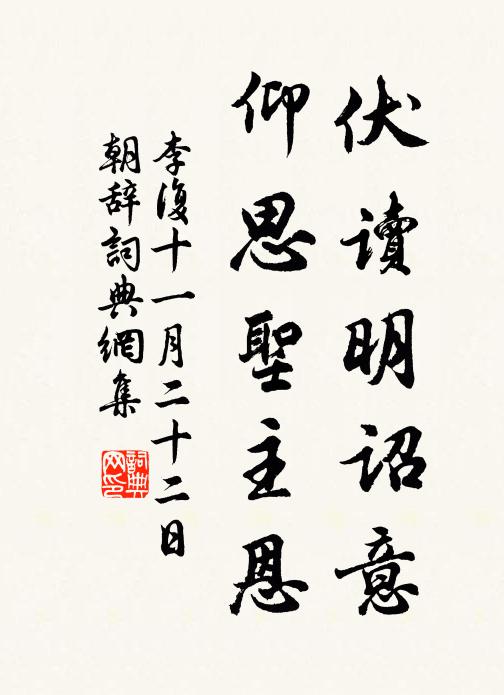 伏讀明詔意
仰思聖主恩
李復十一月二十二日
朝辞詞典網集
詞典
网印